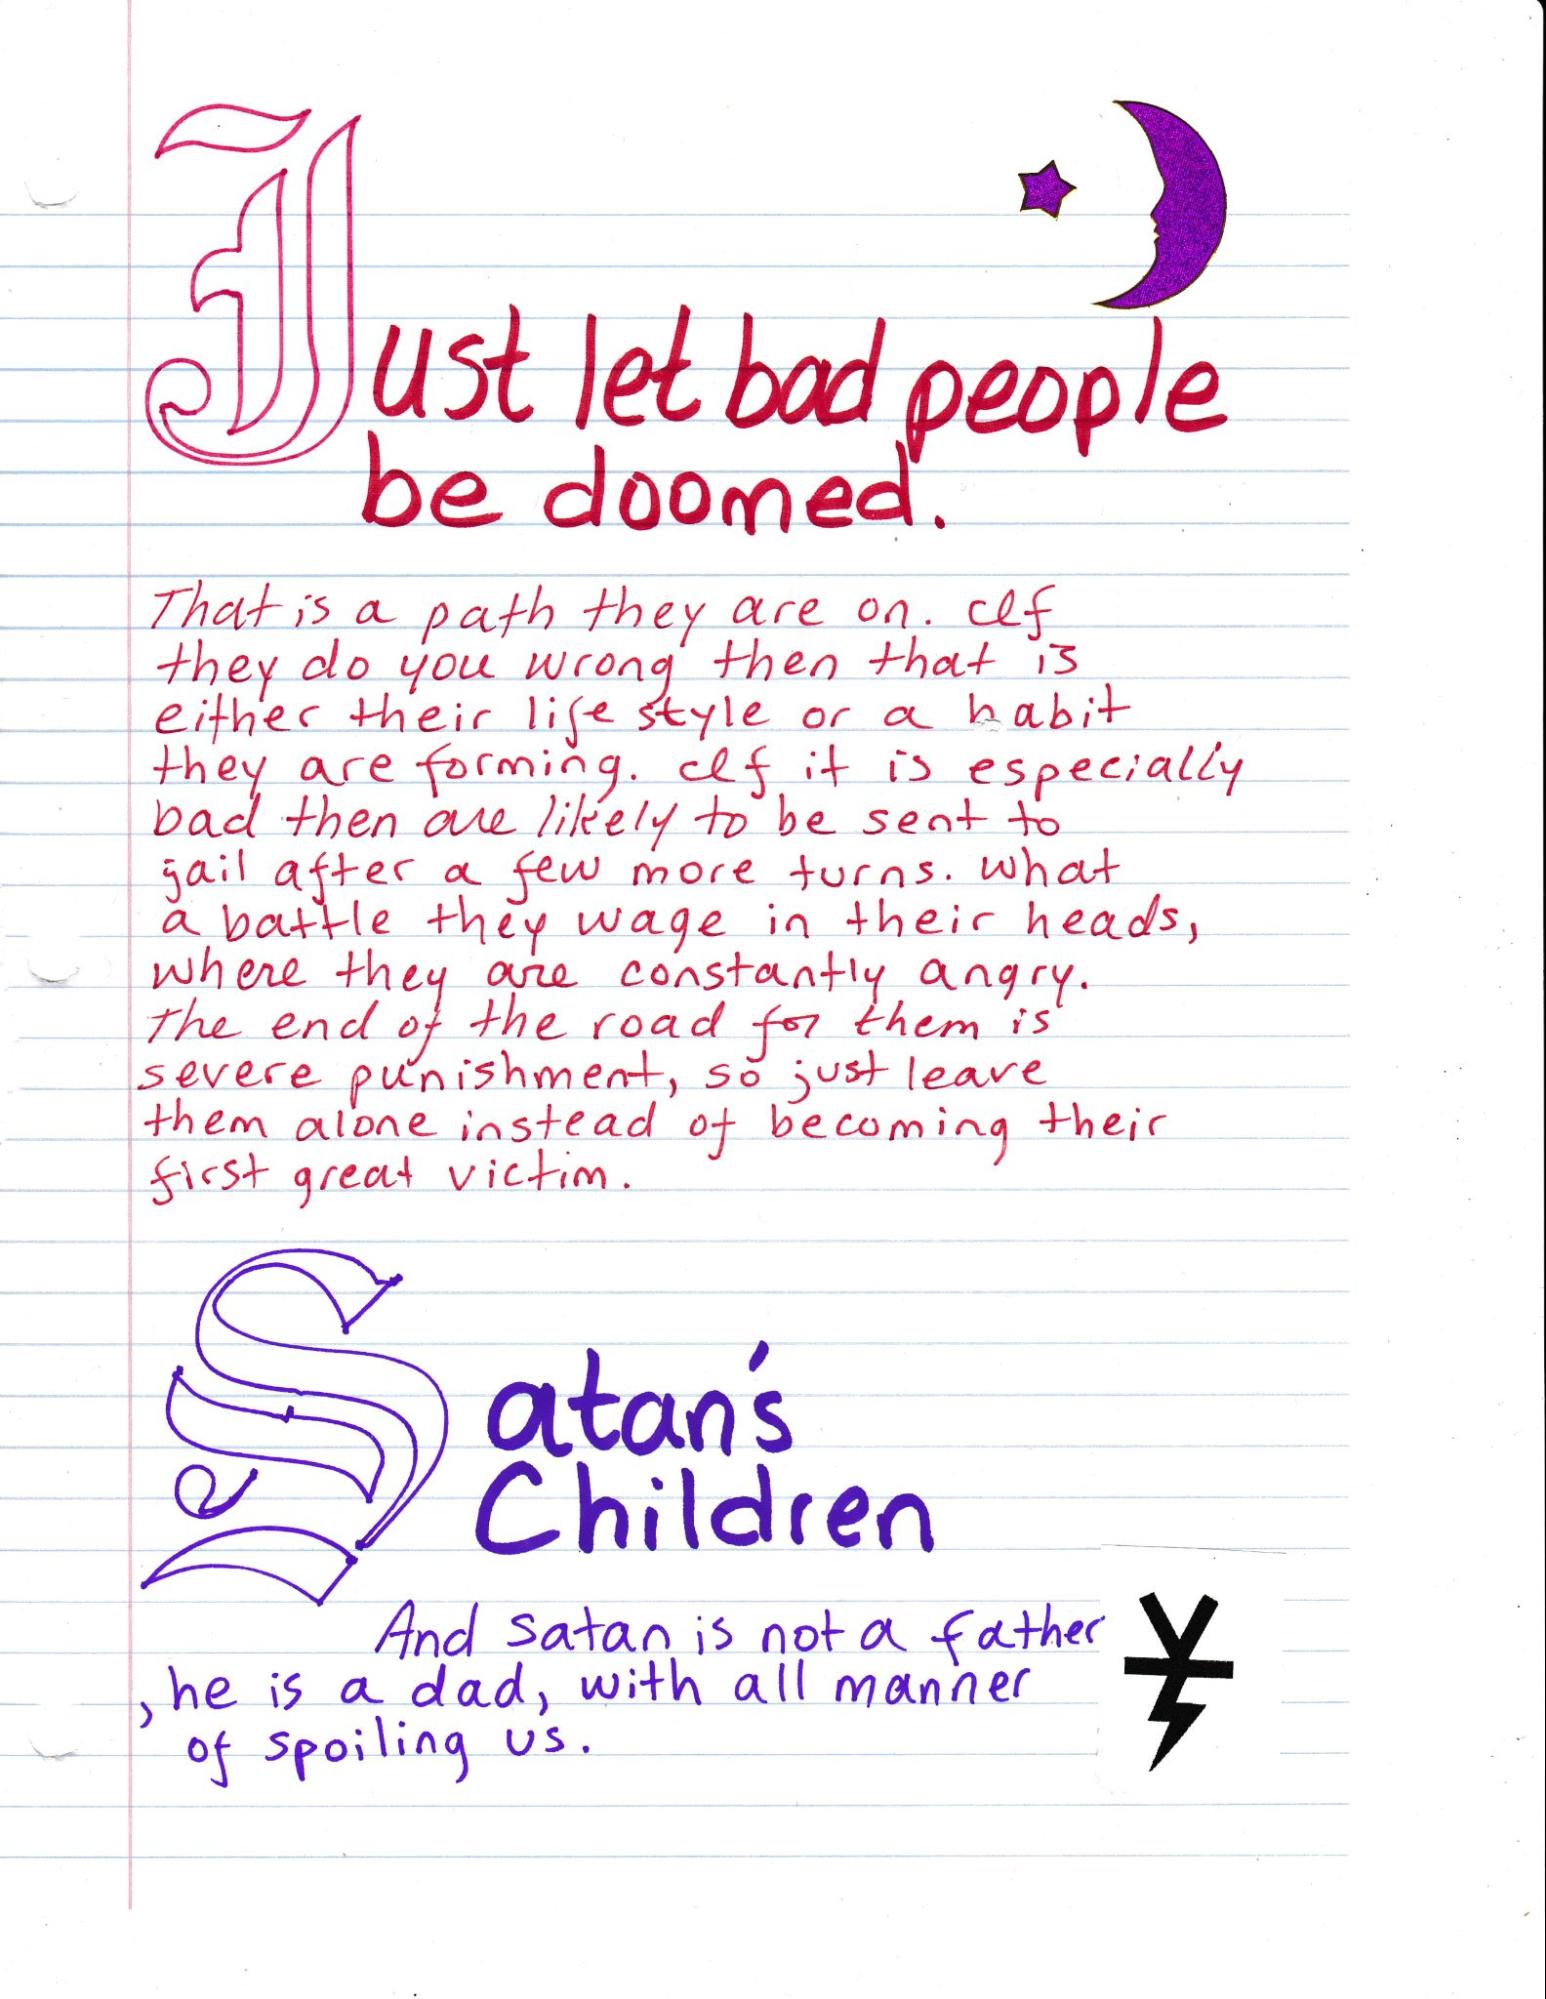 Just let bad people
be doomed.
That is a path they are on. If
they do you wrong then that is
either their life style or a habit
they are forming. If it is especially
bad then are likely to be sent to
jail after a few more turns. What
a battle they wage in their heads,
where they are constantly angry.
The end of the road for them is
severe punishment, so just leave
them alone instead of becoming their
first great victim.
Satan's
Children
And Satan is not a father
, he is a dad, with all manner
of spoiling us.